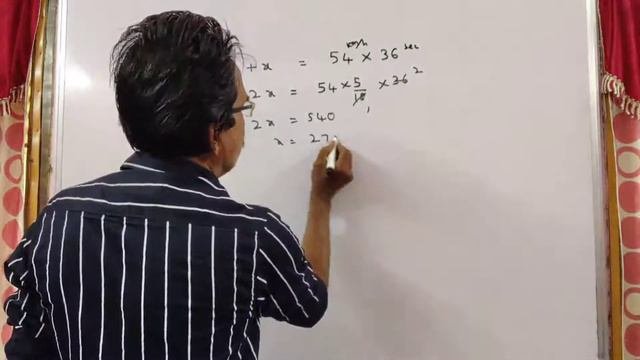 + x = 54 km/h × 36 sec
2x = 54 × 5/18 × 36 2
1
2x = 540
x = 27